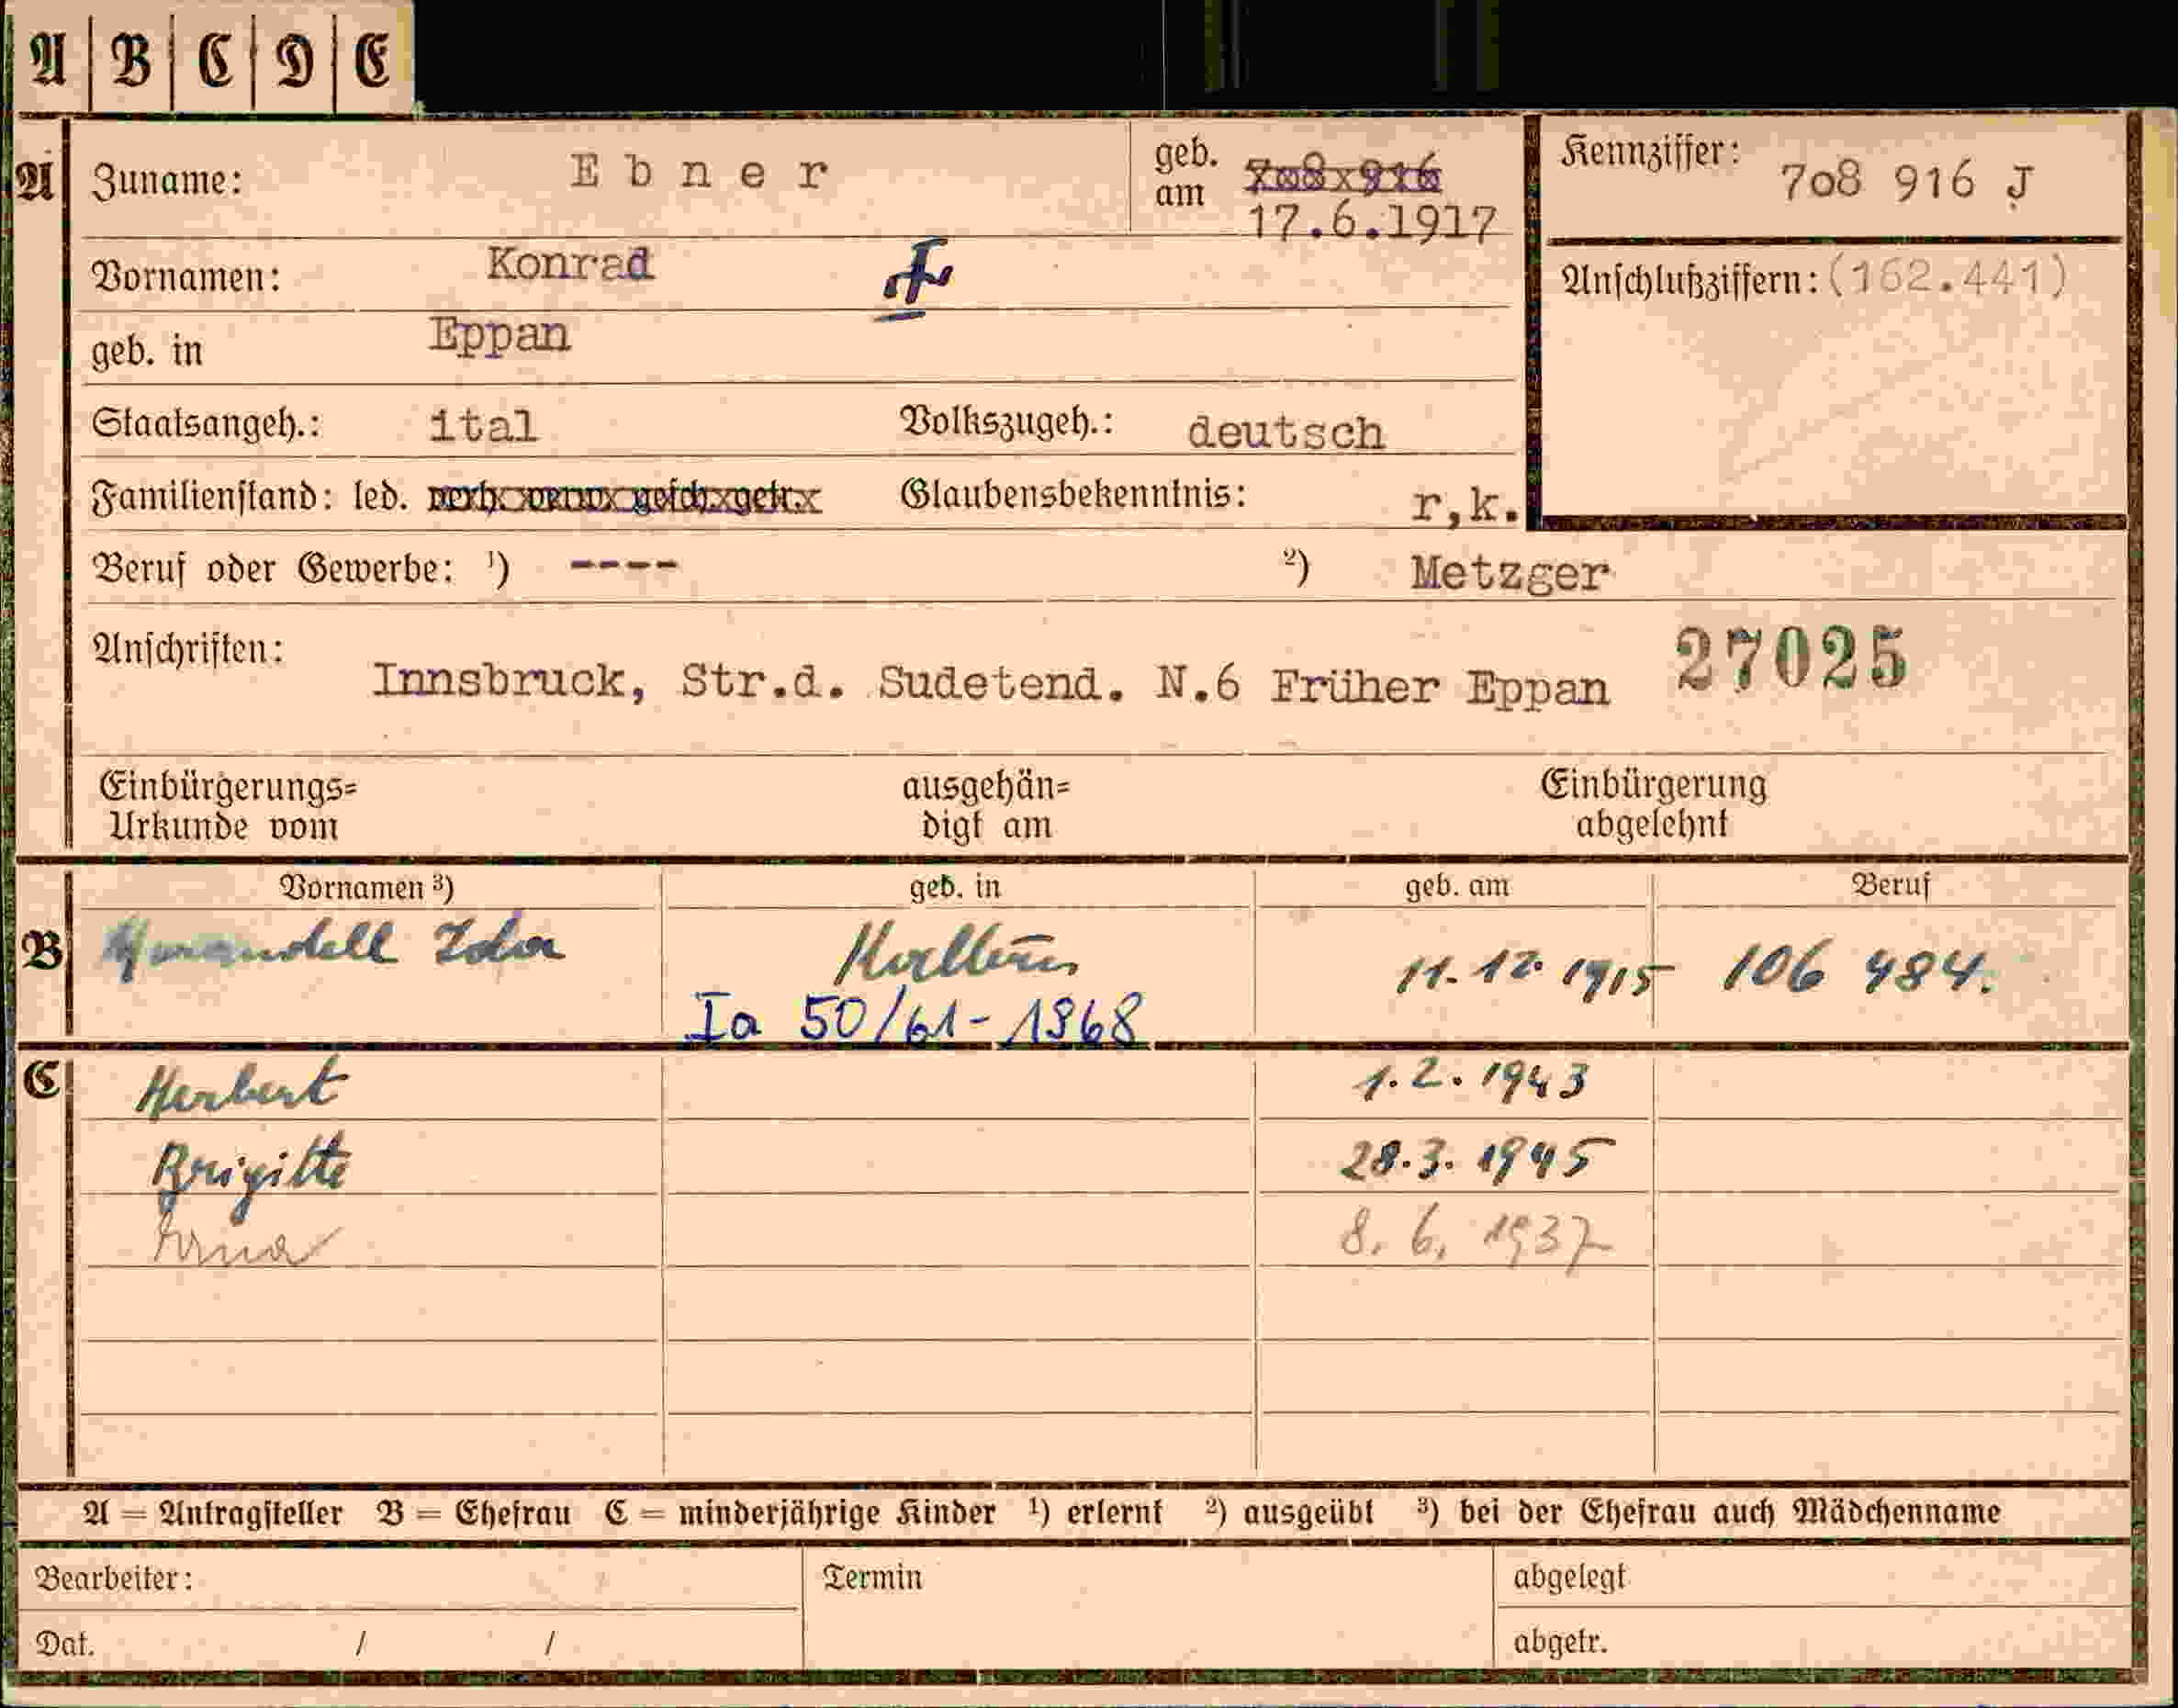 A | B | C | D | E
A Zuname: Ebner geb. am 708 916 17.6.1917 Kennziffer: 7o8 916 J
Vornamen: Konrad Anschlußziffern: (162.441)
geb. in Eppan
Staatsangeh.: ital Volkszugeh.: deutsch
Familienstand: led. verh. verw. gesch. getr. Glaubensbekenntnis: r,k.
Beruf oder Gewerbe: ¹) ---- ²) Metzger
Anschriften: 27025
Innsbruck, Str.d. Sudetend. N.6 Früher Eppan
Einbürgerungs= ausgehän= Einbürgerung
Urkunde vom digt am abgelehnt
Vornamen ³) geb. in geb. am Beruf
B Morandell Ida Kaltern 11.12.1915 106 484.
Ia 50/61-1968
C Herbert 1.2.1943
Brigitte 28.3.1945
Erna 8.6.1937
A = Antragsteller B = Ehefrau C = minderjährige Kinder ¹) erlernt ²) ausgeübt ³) bei der Ehefrau auch Mädchenname
Bearbeiter: Termin abgelegt
Dat. / / abgetr.